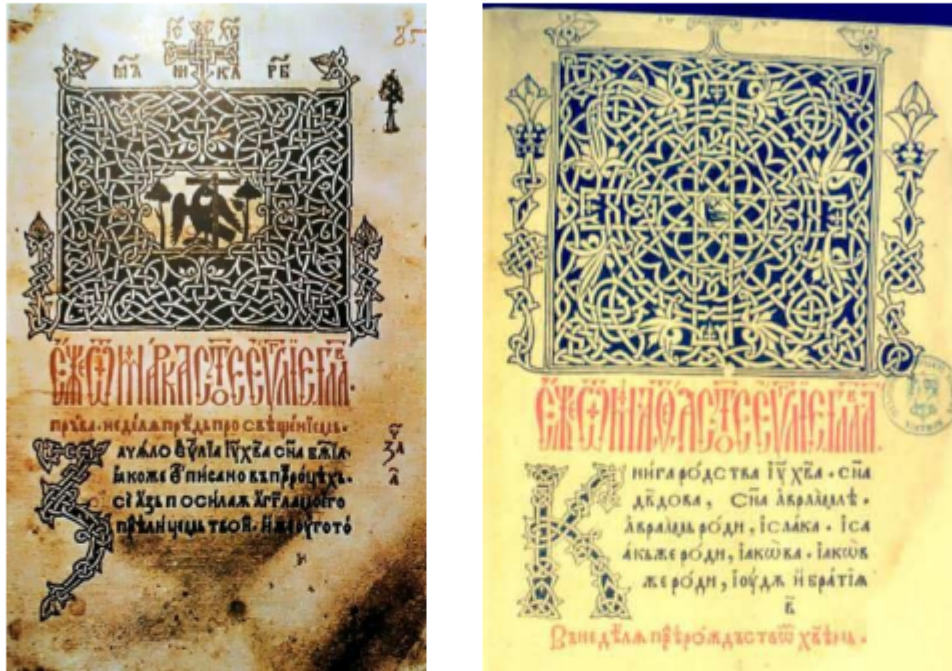 І҃С Х҃С
85
Е҆́же ѿ Марка ст҃ое еѵ҃лїе
пръва. недѣлѧ прѣдъ просвѣщенїемь.
Зачѧло еѵ҃лїа і҆у҃ х҃ва сн҃а бж҃їа.
ꙗкоже е҆ писано въ прⷪ҇роцѣхь.
се а҆́зь посилаѫ а҆гг҃ла моего
прѣⷣ лицемь твоиⷨ. иже оуготѡ
и
Е҆́же ѿ Маѳеа ст҃ое еѵ҃лїе
Книга рѡдства і҆у҃ х҃ва. сн҃а
дв҃дова, сн҃а а҆враамлѣ.
а҆враамь роди, і҆саака. і҆са
акьже роди, і҆акѡва. і҆акѡв
же роди, і҆оудѫ и братїѧ
в҃
Въ недѣлѧ прⷤе рождъства